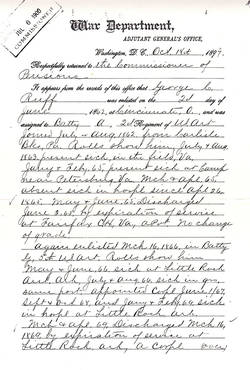 JUL 6 1900
War Department,
ADJUTANT GENERAL'S OFFICE,
Washington, D. C. Oct. 14 1899.
Respectfully returned to the Commissioner of
Pensions.
It appears from the records of this office that George C.
Ruff was enlisted on the 2d day of
June 1862, at Cincinnati O., and was
assigned to Batty 2d Regiment of US Art
Joined July & Aug 1862 from Carlisle
Bks, Pa. Rolls show him, July & Aug
1863, present sick, in the field, Va,
Jany & Feby, 65, present sick at Camp
near Petersburg, Va. Mch & Apl, 65,
absent sick in hospl since Apl 26,
1865. May & June, 65, Discharged
June 3, 65 by expiration of service
at Fairfax CH, Va, a Pvt. No change
of grade.
Again enlisted Mch 16, 1866, in Batty
G, 5 U.S Art. Rolls show him
May & June, 66, sick at Little Rock
Ark, July & Aug 66, sick in qrs,
same post, appointed Corpl June 1/67,
Sept & Oct 67, and Jany & Feby, 69, sick
in hospl at Little Rock Ark.
Mch & Apl 69, Discharged Mch 16,
1869, by expiration of service at
Little Rock, Ark, a Corpl